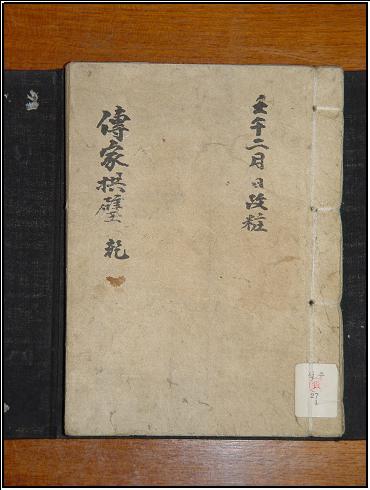 壬午二月日改粧
傳家拱璧 乾
27
1